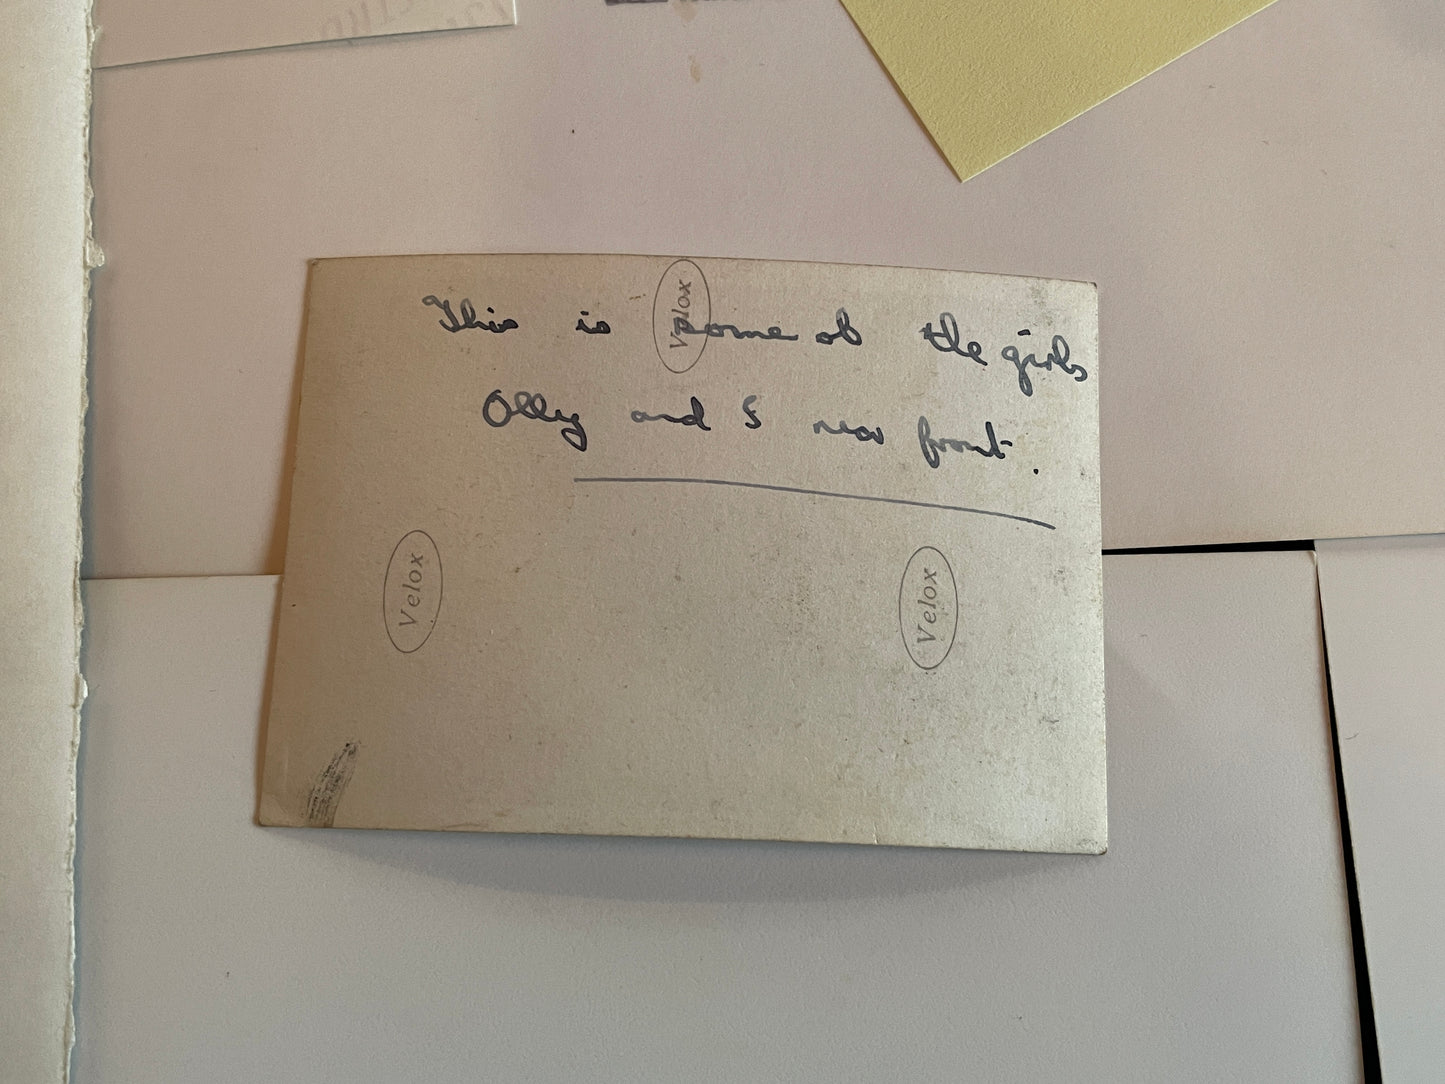 This is some of the girls
Olly and I near front.
Velox
Velox
Velox